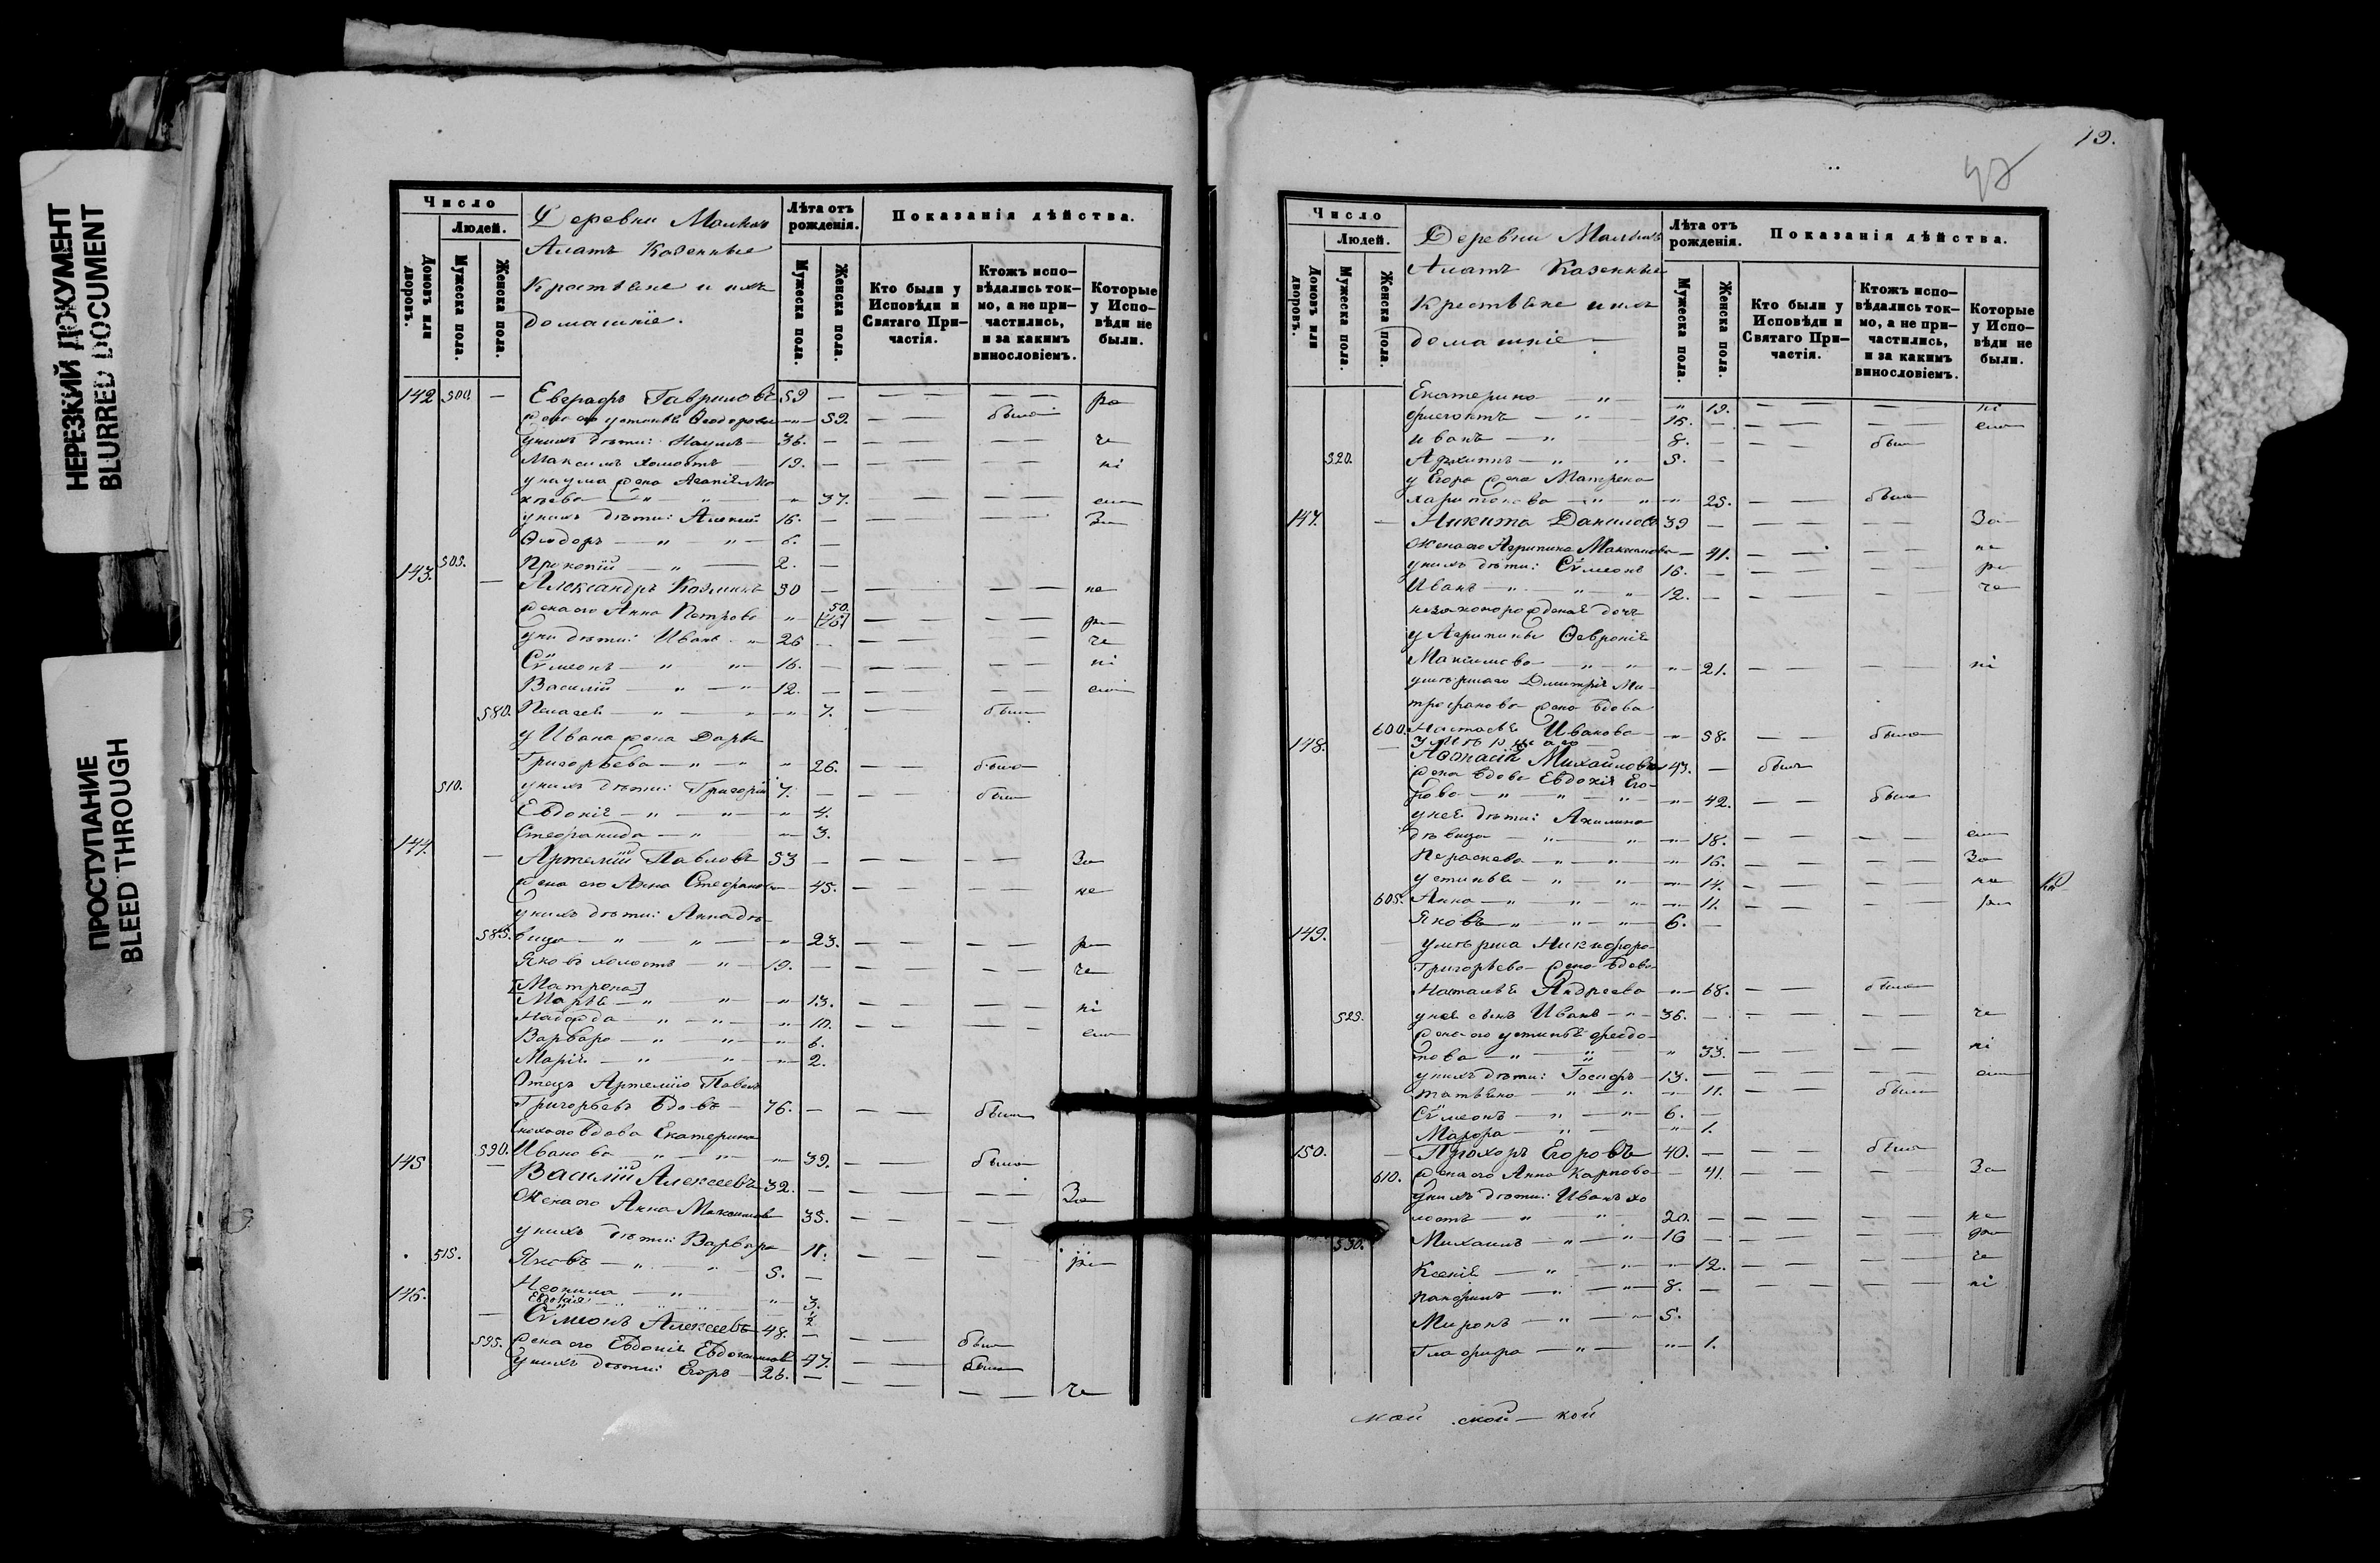 НЕРЕЗКИЙ ДОКУМЕНТ
BLURRED DOCUMENT
ПРОСТУПАНИЕ
BLEED THROUGH
Число
Людей.
Домовъ или дворовъ.
Мужеска пола.
Женска пола.
Деревни
Алатъ Казенные
Крестьяне и ихъ
домашніе.
Лѣта отъ рожденія.
Мужеска пола.
Женска пола.
Показанія дѣйства.
Кто были у Исповѣди и Святаго При-частія.
Ктожъ испо-вѣдались ток-мо, а не при-частились, и за какимъ винословіемъ.
Которые у Испо-вѣди не были.
142 500. — Евграфъ Гавриловъ 59 — — — — — ра
жена его Устинья Ѳеодорова — 59. — — была
у нихъ дѣти: Наумъ — 36. — — — — — че
Максимъ холостъ — 19. — — — — — ні
у Наума жена Агапія
— " — " — " 37. — — — — ем
у нихъ дѣти: Алексій 16. — — — — — За
Ѳеодоръ — " — " — 6. —
505. Прокопій — " — 2. —
143. — Александръ Козминъ 50 — — — — — не
жена его Анна Петрова " 50. — — — — ра
у нихъ дѣти: Иванъ " 26 — — — — — че
Сѷмеонъ — " — " — 16. — — — — — ні
Василій — " — " 12. — — — — ем
580. Пелагея — " — " — " — 7. — — была
у Ивана жена Дарья
Григорьева — " — " " 26. — — была
510. у нихъ дѣти: Григорій 7. — — — былъ
Евдокія — " — " — " 4.
Стефанида — " — " — 3.
144. — Артемій Павловъ 53 — — — — — За
жена его Анна Стефанова — 45. — — — — не
у нихъ дѣти: Анна дѣ-
585. вица — " — " — " — 23. — — — — ра
Яковъ холостъ — " — 19. — — — — — че
[Матрена]
Марья — " — " — " — 13. — — — — ні
Надежда — " — " — " — 10. — — — — ем
Варвара — " — " — " 6.
Марія — " — " — " — 2.
Отецъ Артемію Павелъ
Григорьевъ вдовъ — 76. — — — былъ
вдова Екатерина
590. Иванова — " — " — " — 39. — — была
145 — Василій Алексеевъ 32. — — — — — За
Жена его Анна Максимова 35. — — — —
у нихъ дѣти: Варвара — 11. — — — — ра
515. Яковъ — " — " 5. —
Неонила — " — " 3.
Евдокія — " — " 1/2
146. — Сѷмеонъ Алексеевъ 48. — — — былъ
595. жена его Евдокія Евдокимова 47. — — была
у нихъ дѣти: Егоръ — 26. — — — — — че
19.
Число
Людей.
Домовъ или дворовъ.
Мужеска пола.
Женска пола.
Деревни
Алатъ Казенные
Крестьяне и ихъ
домашніе —
Лѣта отъ рожденія.
Мужеска пола.
Женска пола.
Показанія дѣйства.
Кто были у Исповѣди и Святаго При-частія.
Ктожъ испо-вѣдались ток-мо, а не при-частились, и за какимъ винословіемъ.
Которые у Испо-вѣди не были.
Екатерина — " — " 19. — — — ні
Флегонтъ — " — 15. — — — — ем
Иванъ — " — 8. — — — былъ
520. Архипъ — " — " 5. —
у Егора жена Матрена
Харитонова — " — " — 25. — — была
147. — Никита Даниловъ 39 — — — — — За
Жена его Агрипина Максимова — 41. — — — — не
у нихъ дѣти: Сѷмеонъ 16. — — — — — ра
Иванъ — " — " — " 12. — — — — — че
незаконорожденая дочь
у Агрипины Ѳевронія
Максимова — " — " " — 21. — — — — ні
умершаго Дмитрія Ми-
трофанова жена вдова
600. Настасья Иванова — " — 58. — — была
148. — умершаго
Аѳонасія Михайлова 43. — былъ
жена вдова Евдокія Его-
рова — " — " — " — " — 42. — — была
у нея дѣти: Акилина
дѣвица — " — " — " — 18. — — — — ем
Параскева — " — " — " — 16. — — — — За
Устинья — " — " — " — 14. — — — — не
605. Анна — " — " — " — 11. — — — — ра
Яковъ — " — " — " — 6. —
149. — умерша Никифора
Григорьева жена вдова
Наталья Андреева " — 68. — — была
525. у нея сынъ Иванъ — " — 36. — — — — — че
жена его Устинья Федо-
това — " — " — " 33. — — — — ні
у нихъ дѣти: Іосифъ — 13. — — — — — ем
Татьяна — " — " — " — 11. — — была
Сѷмеонъ — " — " — 6. —
Мавра — " — " — 1.
150. — Прохоръ Егоровъ 40. — — — былъ
610. жена его Анна Карпова — 41. — — — — За
у нихъ дѣти: Иванъ хо
лостъ — " — " 20. — — — — — не
530. Михаилъ — " — " 16 — — — — — ра
Ксенія — " — " — " — 12. — — — — че
Панфилъ — " — " 8. — — — — — ні
Миронъ — " — " 5.
Глафира — " — " — 1.
кой ской — кой